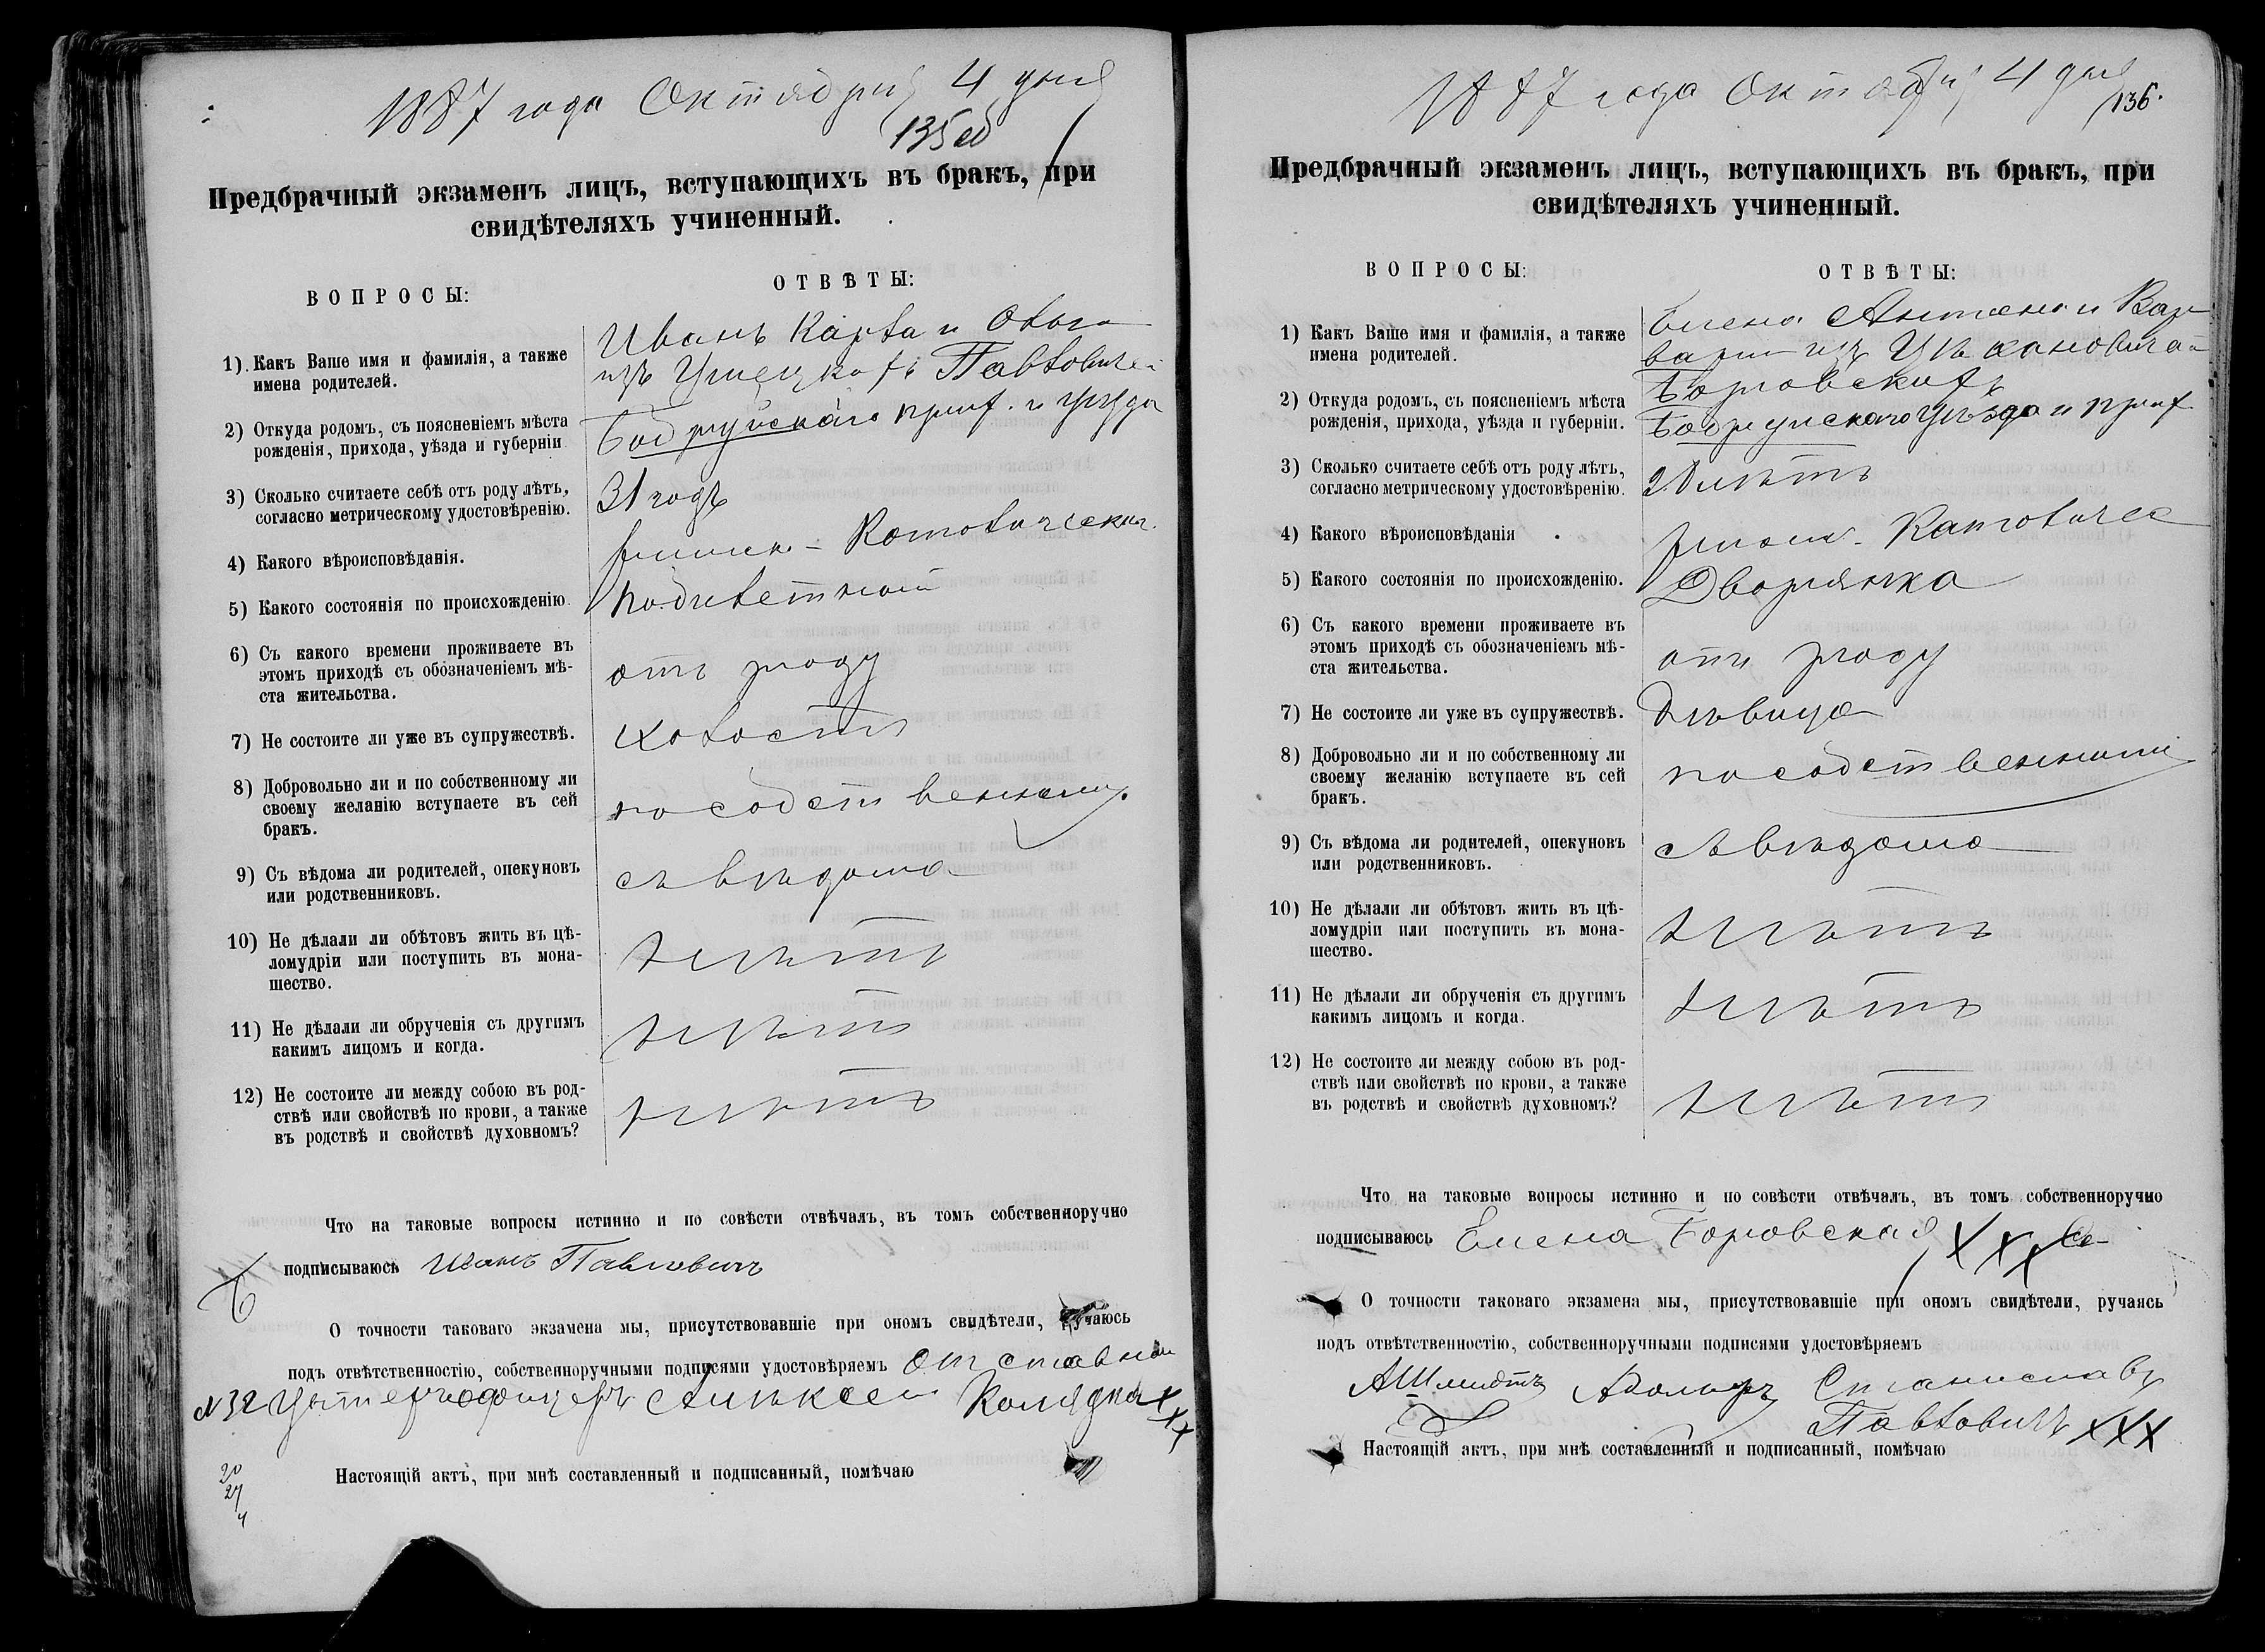 1887 года Октября 4 дня
135 об
Предбрачный экзаменъ лицъ, вступающихъ въ бракъ, при
свидѣтеляхъ учиненный.
ВОПРОСЫ:
ОТВѢТЫ:
1) Какъ Ваше имя и фамилія, а также
имена родителей.
Иванъ Карла и
изъ Павловичей
2) Откуда родомъ, съ поясненіемъ мѣста
рожденія, прихода, уѣзда и губерніи
Бобруйскаго прих. и уѣзда
3) Сколько считаете себѣ отъ роду лѣтъ,
согласно метрическому удостовѣренію.
31 годъ
4) Какого вѣроисповѣданія.
римско-Католическаг.
5) Какого состоянія по происхожденію.
6) Съ какого времени проживаете въ
этомъ приходѣ съ обозначеніемъ мѣ-
ста жительства.
отъ роду
7) Не состоите ли уже въ супружествѣ.
холостъ
8) Добровольно ли и по собственному ли
своему желанію вступаете въ сей
бракъ.
по собственному
9) Съ вѣдома ли родителей, опекуновъ
или родственниковъ.
съ вѣдома
10) Не дѣлали ли обѣтовъ жить въ цѣ-
ломудріи или поступить въ мона-
шество.
нѣтъ
11) Не дѣлали ли обрученія съ другимъ
какимъ лицомъ и когда.
нѣтъ
12) Не состоите ли между собою въ род-
ствѣ или свойствѣ по крови, а также
въ родствѣ и свойствѣ духовномъ?
нѣтъ
Что на таковые вопросы истинно и по совѣсти отвѣчалъ, въ томъ собственноручно
подписываюсь Иванъ Павловичъ
О точности таковаго экзамена мы, присутствовавшіе при ономъ свидѣтели, ручаюсь
подъ отвѣтственностію, собственноручными подписями удостовѣряемъ Отставной
№32 Унтерофицеръ Алексей Колядка ХХХ
Настоящій актъ, при мнѣ составленный и подписанный, помѣчаю
1887 года Октября 4 дня
136.
Предбрачный экзаменъ лицъ, вступающихъ въ бракъ, при
свидѣтеляхъ учиненный.
ВОПРОСЫ:
ОТВѢТЫ:
1) Какъ Ваше имя и фамилія, а также
имена родителей.
Елена Антона и Вар
вары изъ
Боровскихъ
2) Откуда родомъ, съ поясненіемъ мѣста
рожденія, прихода, уѣзда и губерніи.
Бобруйскаго уѣзда и прих
3) Сколько считаете себѣ отъ роду лѣтъ,
согласно метрическому удостовѣренію.
лѣтъ
4) Какого вѣроисповѣданія
римск. Католичес
5) Какого состоянія по происхожденію.
Дворянка
6) Съ какого времени проживаете въ
этомъ приходѣ съ обозначеніемъ мѣ-
ста жительства.
отъ роду
7) Не состоите ли уже въ супружествѣ.
дѣвица
8) Добровольно ли и по собственному ли
своему желанію вступаете въ сей
бракъ.
по собственному
9) Съ вѣдома ли родителей, опекуновъ
или родственниковъ.
съ вѣдома
10) Не дѣлали ли обѣтовъ жить въ цѣ-
ломудріи или поступить въ мона-
шество.
нѣтъ
11) Не дѣлали ли обрученія съ другимъ
какимъ лицомъ и когда.
нѣтъ
12) Не состоите ли между собою въ род-
ствѣ или свойствѣ по крови, а также
въ родствѣ и свойствѣ духовномъ?
нѣтъ
Что на таковые вопросы истинно и по совѣсти отвѣчалъ, въ томъ собственноручно
подписываюсь Елена Боровская ХХХ
О точности таковаго экзамена мы, присутствовавшіе при ономъ свидѣтели, ручаясь
подъ отвѣтственностію, собственноручными подписями удостовѣряемъ
А Шмидтъ Адольфъ Станиславъ
Павловичъ ХХХ
Настоящій актъ, при мнѣ составленный и подписанный, помѣчаю